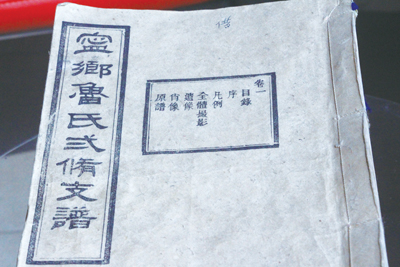 寧鄉魯氏弍脩支譜
卷一
目錄
序
凡例
全體攝影
肖像
原譜